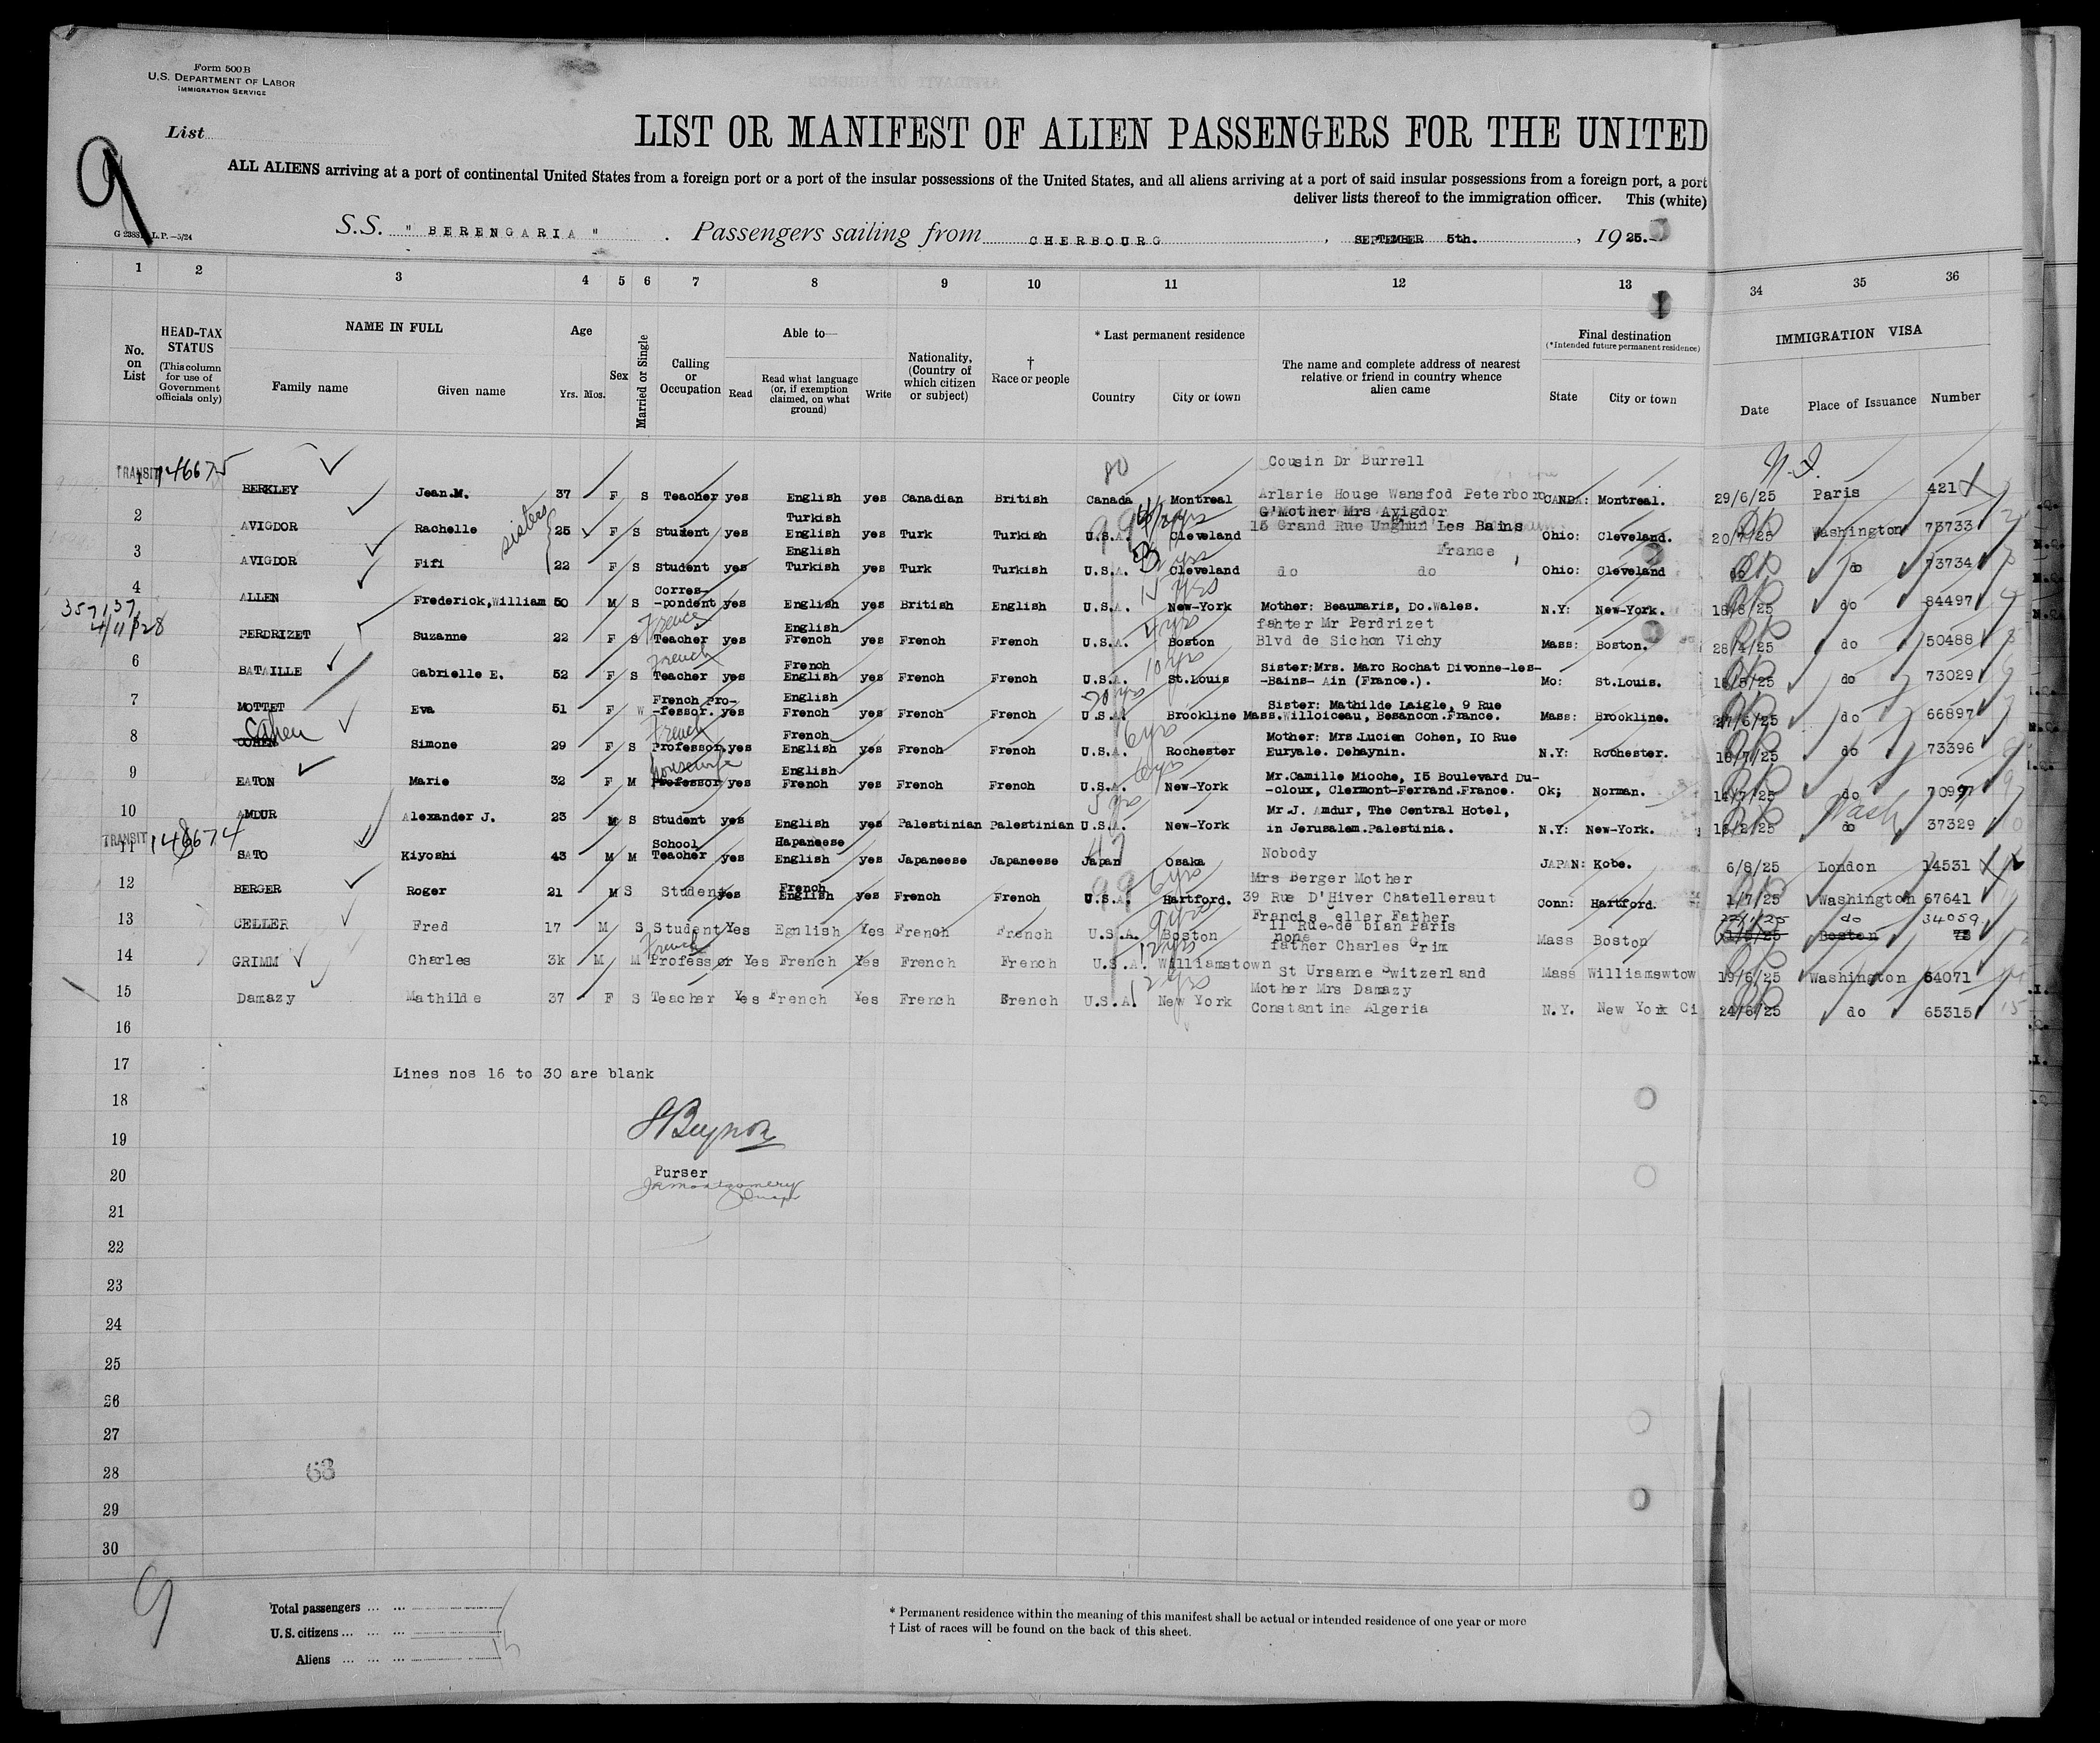 Form 500 B
U.S. DEPARTMENT OF LABOR
IMMIGRATION SERVICE
List
9
LIST OR MANIFEST OF ALIEN PASSENGERS FOR THE UNITED
ALL ALIENS arriving at a port of continental United States from a foreign port or a port of the insular possessions of the United States, and all aliens arriving at a port of said insular possessions from a foreign port, a port
deliver lists thereof to the immigration officer. This (white)
S.S. " BERENGARIA " . Passengers sailing from CHERBOURG , SEPTEMBER 5th. , 1925.-
1 2 3 4 5 6 7 8 9 10 11 12 13 34 35 36
No. on List
HEAD-TAX STATUS
(This column for use of Government officials only)
NAME IN FULL
Family name Given name
Age
Yrs. Mos.
Sex
Married or Single
Calling or Occupation
Able to—
Read
Read what language (or, if exemption claimed, on what ground)
Write
Nationality, (Country of which citizen or subject)
† Race or people
* Last permanent residence
Country City or town
The name and complete address of nearest relative or friend in country whence alien came
Final destination
(*Intended future permanent residence)
State City or town
IMMIGRATION VISA
Date Place of Issuance Number
TRANSIT 146675 Cousin Dr Burrell
1 BERKLEY Jean.M. 37 F S Teacher yes English yes Canadian British Canada Montreal Arlarie House Wansfod Peterboro CANDA: Montreal. 29/6/25 Paris 421
sisters
Turkish G'Mother Mrs Avigdor
2 AVIGDOR Rachelle 25 F S Student yes English yes Turk Turkish U.S.A. Cleveland 15 Grand Rue Les Bains Ohio: Cleveland. 20/7/25 Washington 73733
English France
3 AVIGDOR Fifi 22 F S Student yes Turkish yes Turk Turkish U.S.A. Cleveland do do Ohio: Cleveland do do 73734
Corres-
4 ALLEN Frederick,William 50 M S -pondent yes English yes British English U.S.A. New-York Mother: Beaumaris, Do.Wales. N.Y: New-York. 18/8/25 do 84497
French English fahter Mr Perdrizet
PERDRIZET Suzanne 22 F S Teacher yes French yes French French U.S.A. Boston Blvd de Sichon Vichy Mass: Boston. 28/4/25 do 50488
French French 10 yrs Sister:Mrs. Marc Rochat Divonne-les-
6 BATAILLE Gabrielle E. 52 F S Teacher yes English yes French French U.S.A. St.Louis -Bains- Ain (France.). Mo: St.Louis. do 73029
French Pro- English Sister: Mathilde Laigle, 9 Rue
7 MOTTET Eva 51 F W -fessor. yes French yes French French U.S.A. Brookline Mass. Willoiceau, Besancon.France. Mass: Brookline. 27/6/25 do 66897
Cahen French French 6 yrs Mother: Mrs.Lucien Cohen, IO Rue
8 COHEN Simone 29 F S Professor. yes English yes French French U.S.A. Rochester Euryale. Dehaynin. N.Y: Rochester. do 73396
housewife English 6 yrs Mr.Camille Mioche, I5 Boulevard Du-
9 EATON Marie 32 F M Professor yes French yes French French U.S.A. New-York -cloux, Clermont-Ferrand.France. Ok; Norman. 14/7/25 do 70997
Mr.J. Amdur, The Central Hotel, Wash
10 AMDUR Alexander J. 23 M S Student yes English yes Palestinian Palestinian U.S.A. New-York in Jerusalem.Palestinia. N.Y: New-York. do 37329
TRANSIT 148674 School Hapaneese Nobody
11 SATO Kiyoshi 43 M M Teacher yes English yes Japaneese Japaneese Japan Osaka JAPAN: Kobe. 6/8/25 London 14531
French 6 yrs Mrs Berger Mother
12 BERGER Roger 21 M S Student yes English yes French French U.S.A. Hartford. 39 Rue D'Hiver Chatelleraut Conn: Hartford. 1/7/25 Washington 67641
Francis eller Father do 34059
11 Rue de bian Paris
13 CELLER Fred 17 M S Student Yes Egnlish Yes French French U.S.A. Boston none Mass Boston Boston
French 12 yrs father Charles Grim
14 GRIMM Charles 3k M M Professor Yes French Yes French French U.S.A. Williamstown St Ursanne Switzerland Mass Williamswtow 19/6/25 Washington 64071
Mother Mrs Damazy
15 Damazy Mathilde 37 F S Teacher Yes French Yes French French U.S.A. New York Constantine Algeria N.Y. New York Ci 24/6/25 do 65315
16
17
Lines nos 16 to 30 are blank
18
19
20
Purser
21
22
23
24
25
26
27
28
63
29
30
9
Total passengers
U.S. citizens
Aliens 15
* Permanent residence within the meaning of this manifest shall be actual or intended residence of one year or more
† List of races will be found on the back of this sheet.